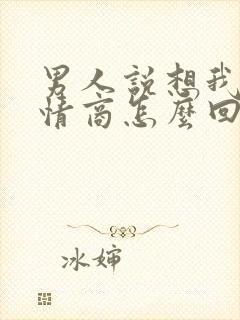 男人說想我
情商怎麼回
冰嬸